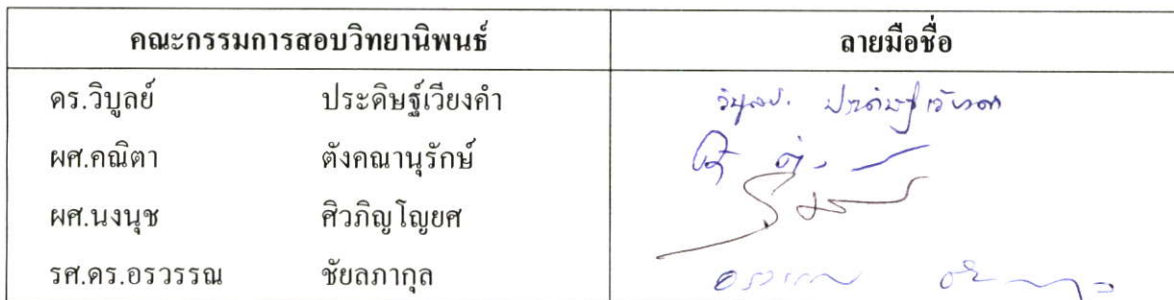 คณะกรรมการสอบวิทยานิพนธ์ ลายมือชื่อ
ดร.วิบูลย์ ประดิษฐ์เวียงคำ
ผศ.คณิตา ตังคณานุรักษ์
ผศ.นงนุช ศิวภิญโญยศ
รศ.ดร.อรวรรณ ชัยลภากุล